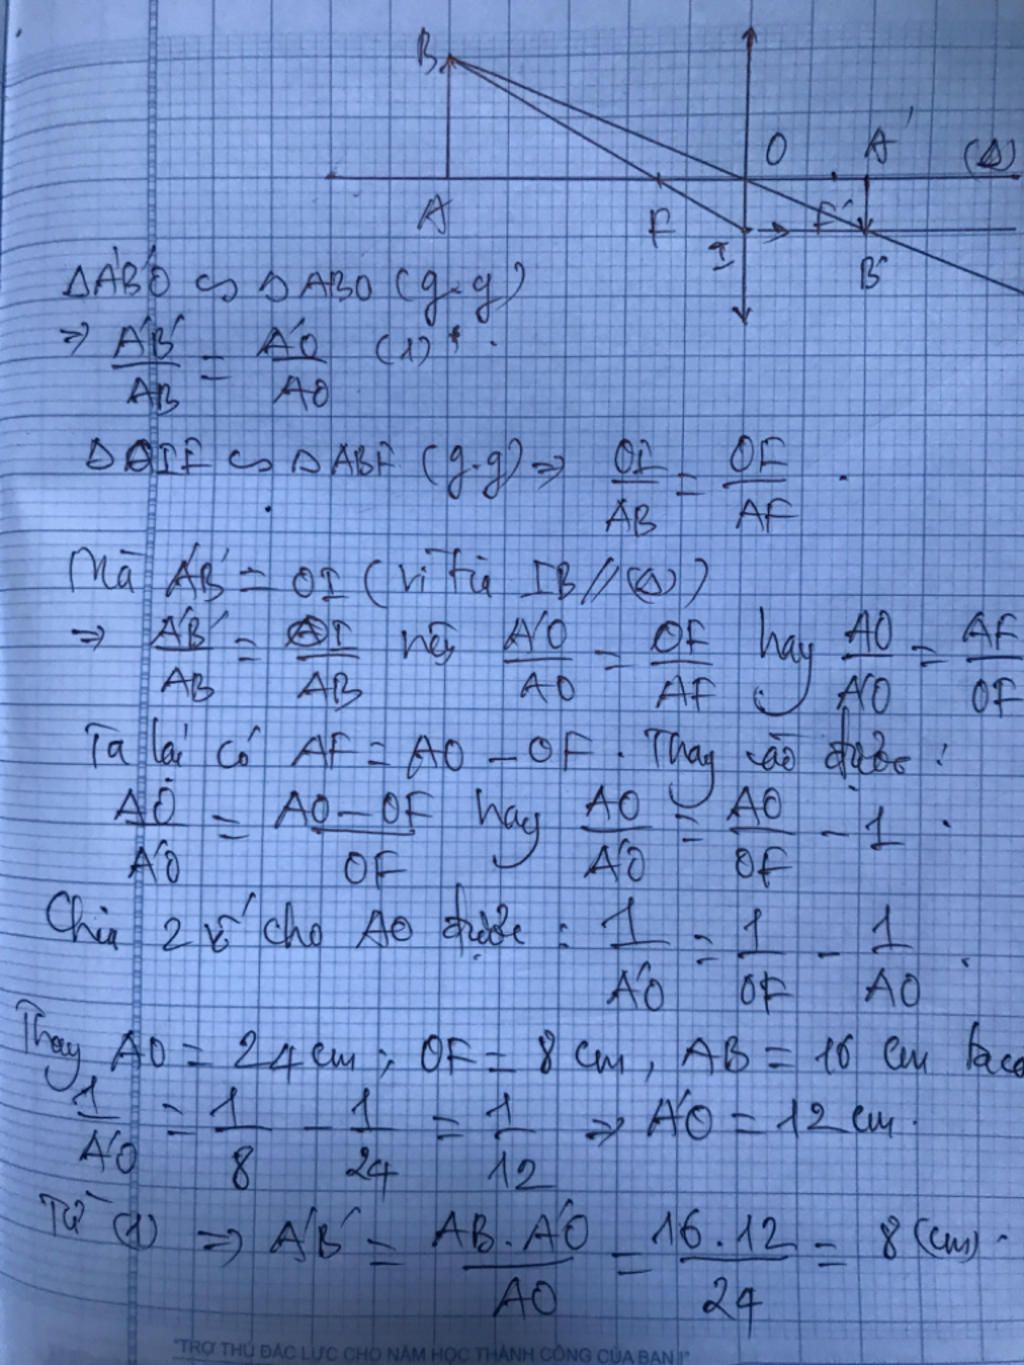 B
O A' (Δ)
A F I F' B'
ΔA'B'O ∽ ΔABO (g.g)
⇒ A'B'/AB = A'O/AO (1)
ΔOIF ∽ ΔABF (g.g) ⇒ OI/AB = OF/AF
Mà A'B' = OI (vì tia IB // (Δ))
⇒ A'B'/AB = OI/AB nên A'O/AO = OF/AF hay AO/A'O = AF/OF
Ta lại có AF = AO - OF. Thay vào được:
AO/A'O = AO - OF/OF hay AO/A'O = AO/OF - 1
Chia 2 vế cho AO được: 1/A'O = 1/OF - 1/AO.
Thay AO = 24 cm; OF = 8 cm, AB = 16 cm ta có
1/A'O = 1/8 - 1/24 = 1/12 ⇒ A'O = 12 cm.
Từ (1) ⇒ A'B' = AB.A'O/AO = 16.12/24 = 8 (cm).
"TRỢ THỦ ĐẮC LỰC CHO NĂM HỌC THÀNH CÔNG CỦA BẠN!"